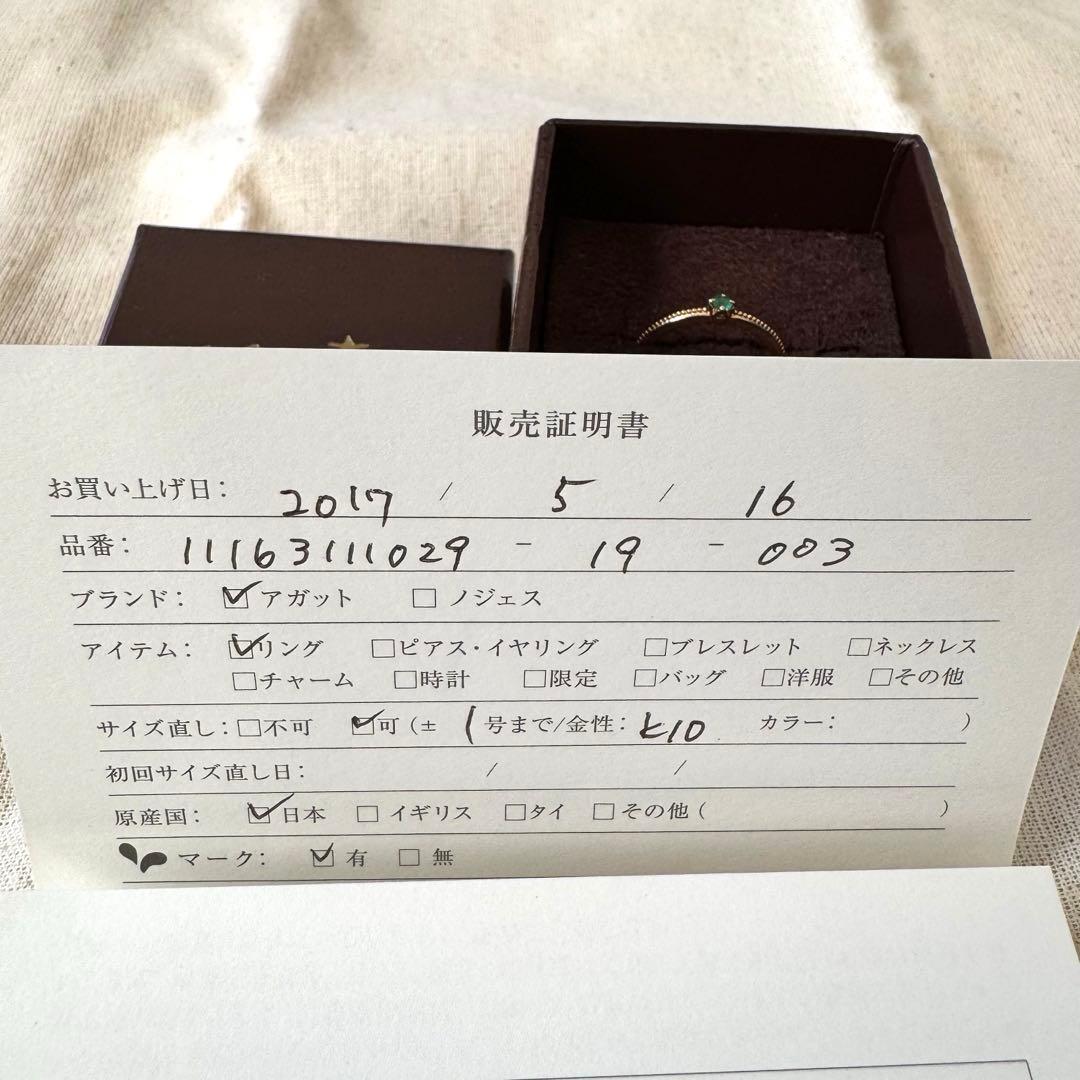 販売証明書
お買い上げ日： 2017 / 5 / 16
品番： 11163111029 - 19 - 003
ブランド： ☑アガット □ノジェス
アイテム： ☑リング □ピアス・イヤリング □ブレスレット □ネックレス
□チャーム □時計 □限定 □バッグ □洋服 □その他
サイズ直し：□不可 ☑可（± 1 号まで/金性：K10 カラー： ）
初回サイズ直し日： / /
原産国： ☑日本 □イギリス □タイ □その他（ ）
マーク： ☑有 □無